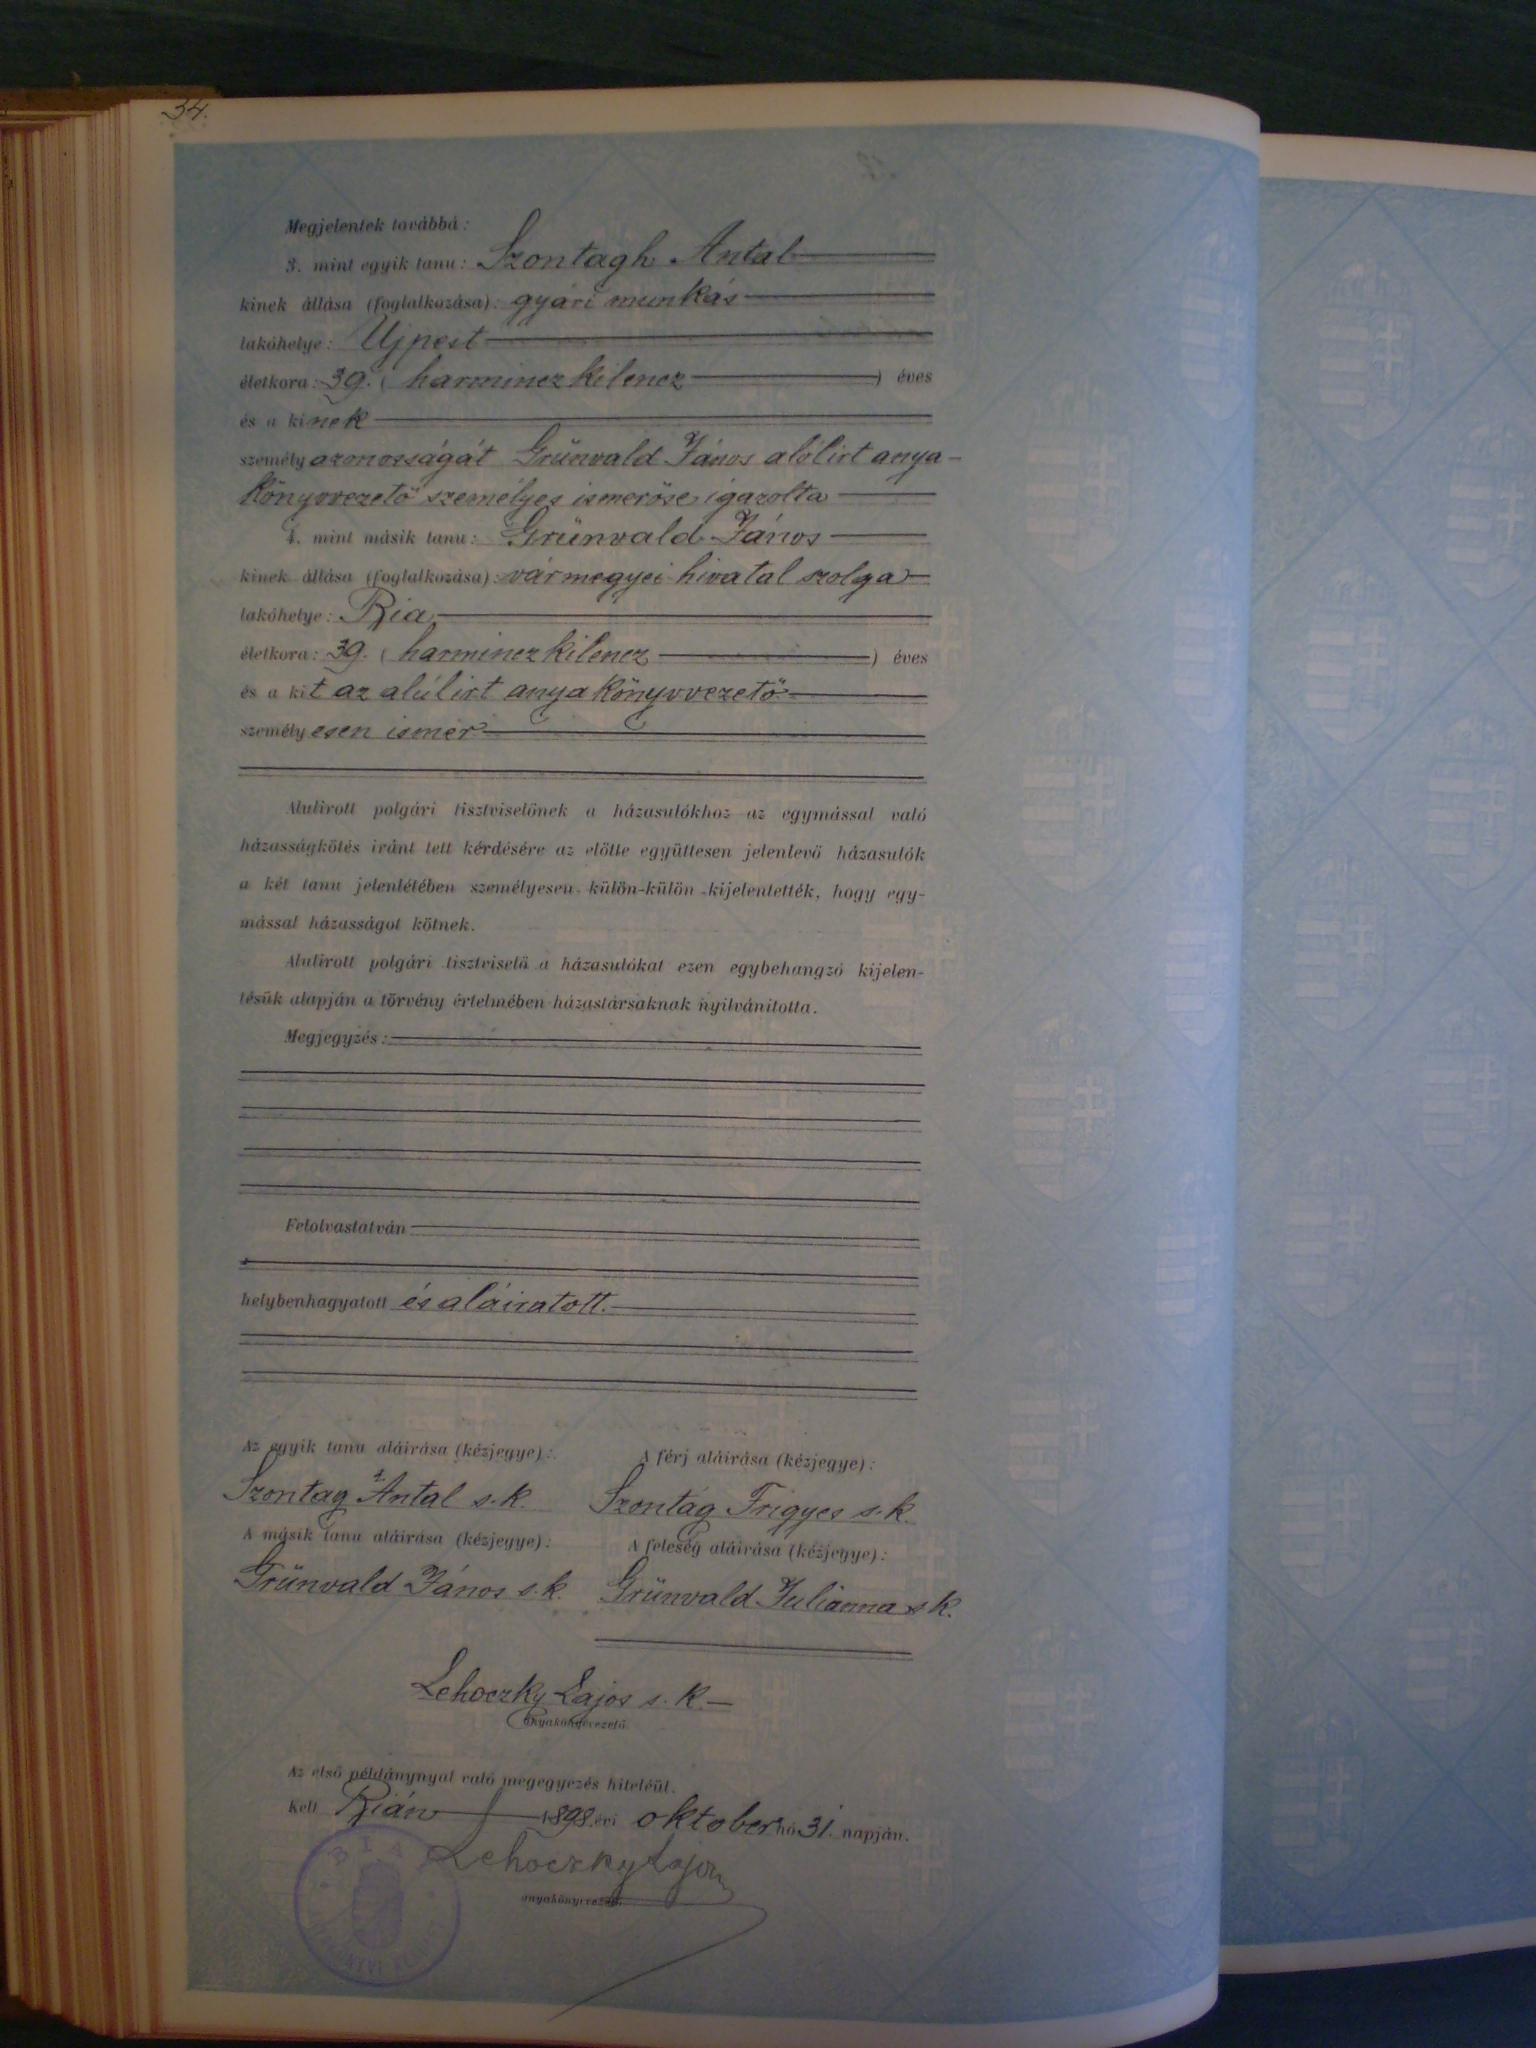 34.
Megjelentek továbbá:
3. mint egyik tanu: Szontagh Antal
kinek állása (foglalkozása): gyári munkás
lakóhelye: Ujpest
életkora: 39. (harmincz kilencz) éves
és a kinek
személyazonosságát Grünvald János alólirt anya-
könyvvezető személyes ismerőse igazolta
4. mint másik tanu: Grünvald János
kinek állása (foglalkozása): vármegyei hivatal szolga
lakóhelye: Bia
életkora: 39. (harmincz kilencz) éves
és a kit az alólirt anyakönyvvezető
személyesen ismer
Alulírott polgári tisztviselőnek a házasulókhoz az egymással való
házasságkötés iránt tett kérdésére az előtte együttesen jelenlevő házasulók
a két tanu jelenlétében személyesen külön-külön kijelentették, hogy egy-
mással házasságot kötnek.
Alulírott polgári tisztviselő a házasulókat ezen egybehangzó kijelen-
tésük alapján a törvény értelmében házastársaknak nyilvánította.
Megjegyzés:
Felolvastatván
helybenhagyatott és aláiratott.
Az egyik tanu aláirása (kézjegye): A férj aláirása (kézjegye):
Szontag Antal s.k. Szontág Frigyes s.k.
A másik tanu aláirása (kézjegye): A feleség aláirása (kézjegye):
Grünvald János s.k. Grünvald Julianna s k.
Lehoczky Lajos s. k.
anyakönyvvezető.
Az első példánynyal való megegyezés hiteléül.
Kelt Bián 1898. évi oktober hó 31. napján.
Lehoczky Lajos
anyakönyvvezető.